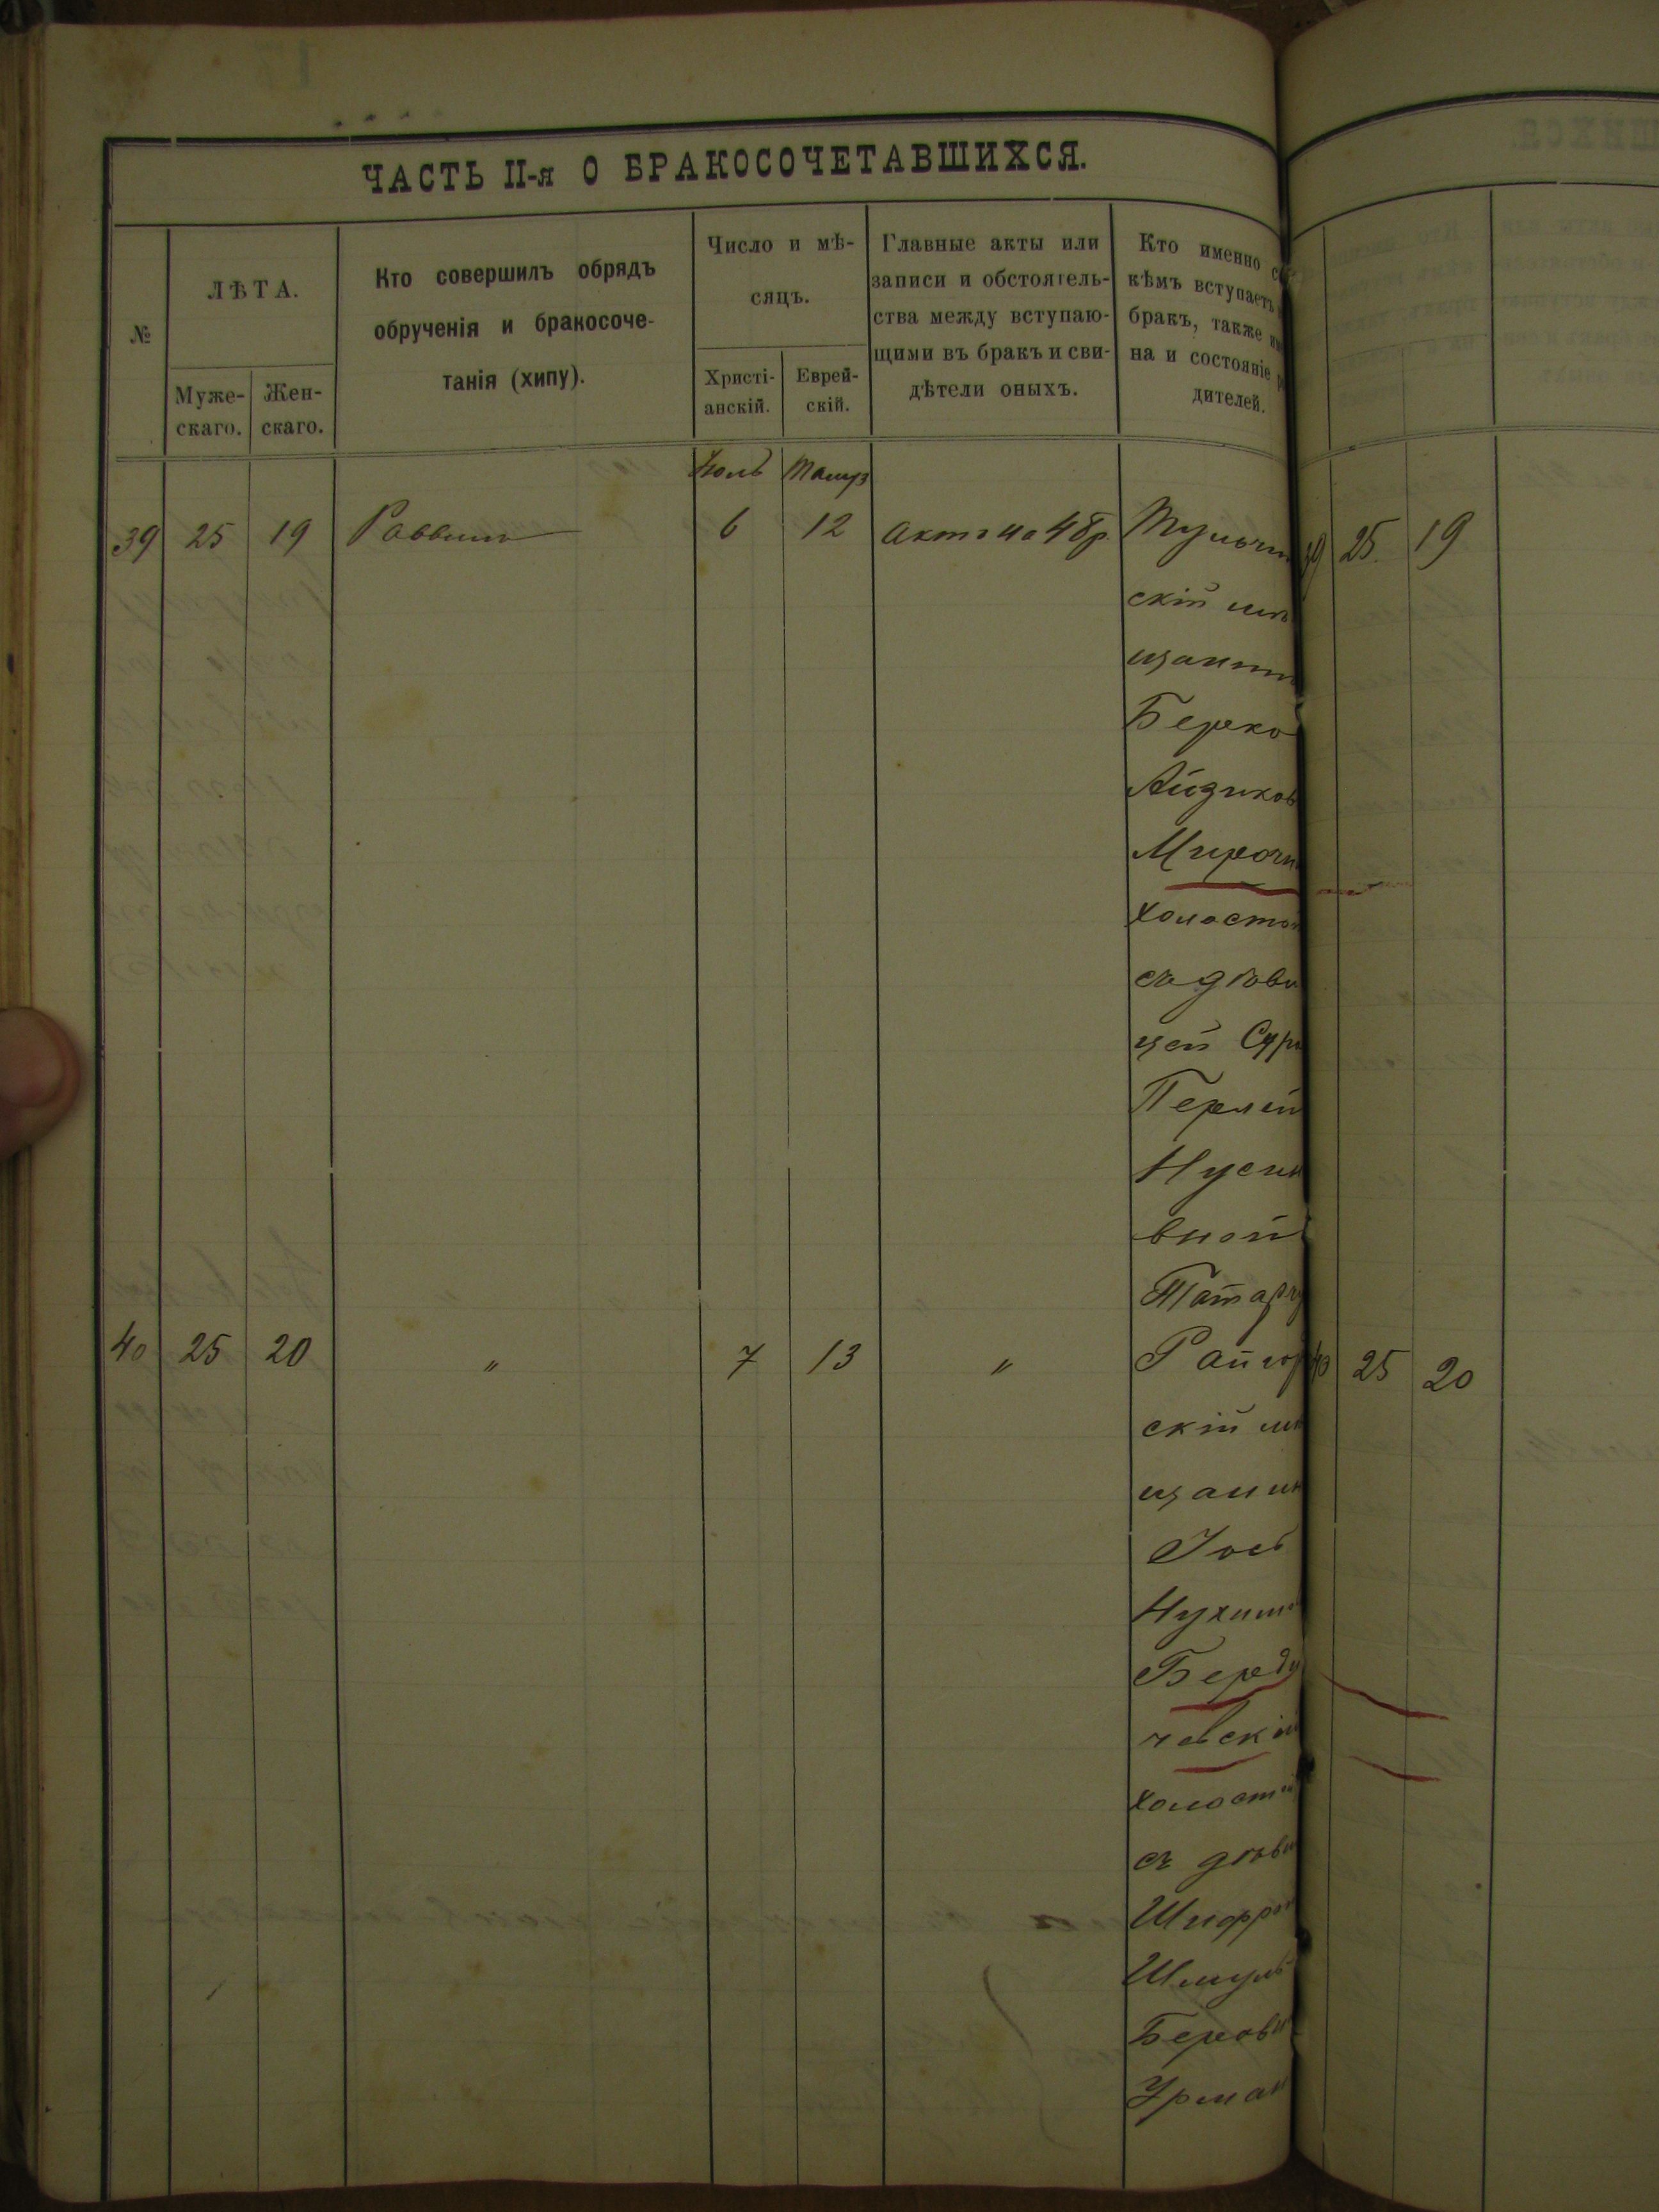 ЧАСТЬ II-я О БРАКОСОЧЕТАВШИХСЯ.
№
ЛѢТА.
Муже-
скаго.
Жен-
скаго.
Кто совершилъ обрядъ
обрученія и бракосоче-
танія (хипу).
Число и мѣ-
сяцъ.
Христі-
анскій.
Еврей-
скій.
Главные акты или
записи и обстоятель-
ства между вступаю-
щими въ бракъ и сви-
дѣтели оныхъ.
Кто именно съ
кѣмъ вступаетъ
бракъ, также
на и состояніе
дителей.
Тамуз
39 25 19 Раввинъ 6 12 Актъ на 48 р. Тульчин
скій мѣ
щанин
Берко
Айзиков
Мирочн
холостой
съ дѣви
цей Сур
Перлей
Нусин
вной
Татарч
40 25 20 " 7 13 " Райгор
скій мѣ
щанин
Іось
Нухимов
Берди
чевскій
холостой
съ дѣви
Шифрой
Шмуль
Беровн
Урман
39 25. 19
40 25 20